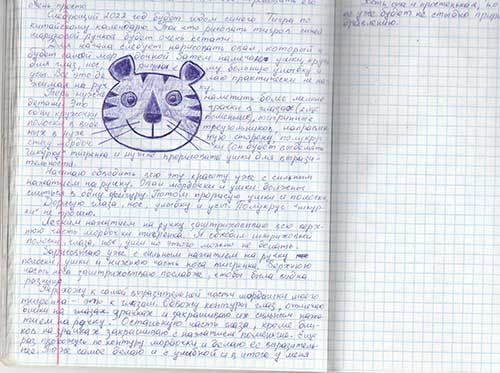 очень просто
Следующий 2022 год будет годом синего Тигра по
китайскому календарю. Так что рисовать тигров синей
шариковой ручкой будет очень кстати.
Для начала следует нарисовать овал, который и
будет самой мордочкой. Затем намечаю ушки, круги
для глаз, нос
большую улыбку и
усы. Все это
делаю практически не на-
жимая на руч
наметить более мелкие
детали. Это
зрачки в глазах (внутри
поменьше), тигриные
полоски в виде
треугольников, направлен-
ных в
сторону, полукруг
снизу мордоч
ки (он будет
шкурку тигренка и нужно прорисовать ушки для вырази-
тельности.
Начинаю обводить всю эту красоту уже с сильным
нажатием на ручку. Овал мордочки и ушки должны
слиться в одну фигуру. Потом прорисую ушки и полоски.
Дорисую глаза, нос, улыбку и усы. Полукруг "шкур-
ки" не трогаю.
Легким нажатием на ручку заштриховываю всю верх-
нюю часть мордочки тигренка. Я обхожу штриховкой
полоски, глаза, нос, уши но этого можно не делать.
Зарисовываю уже с сильным нажатием на ручку
полоски, ушки и нижнюю часть носа тигренка. Верхнюю
часть носа заштриховываю послабже, чтобы была видна
разница.
Перехожу к самой выразительной части мордашки моего
тигренка - это к глазам. Обвожу контуры глаз, отмечаю
блики на глазах, зрачках и закрашиваю их сильным нажа-
тием на ручку. Остальную часть глаза, кроме бли-
ков на зрачках закрашиваю с нажатием поменьше. Еще
раз прохожусь по контуру мордочки и делаю ее выразитель-
нее. То же самое делаю и с улыбкой и в итоге у меня
есть она и простенькая, но
уже будет не стыдно